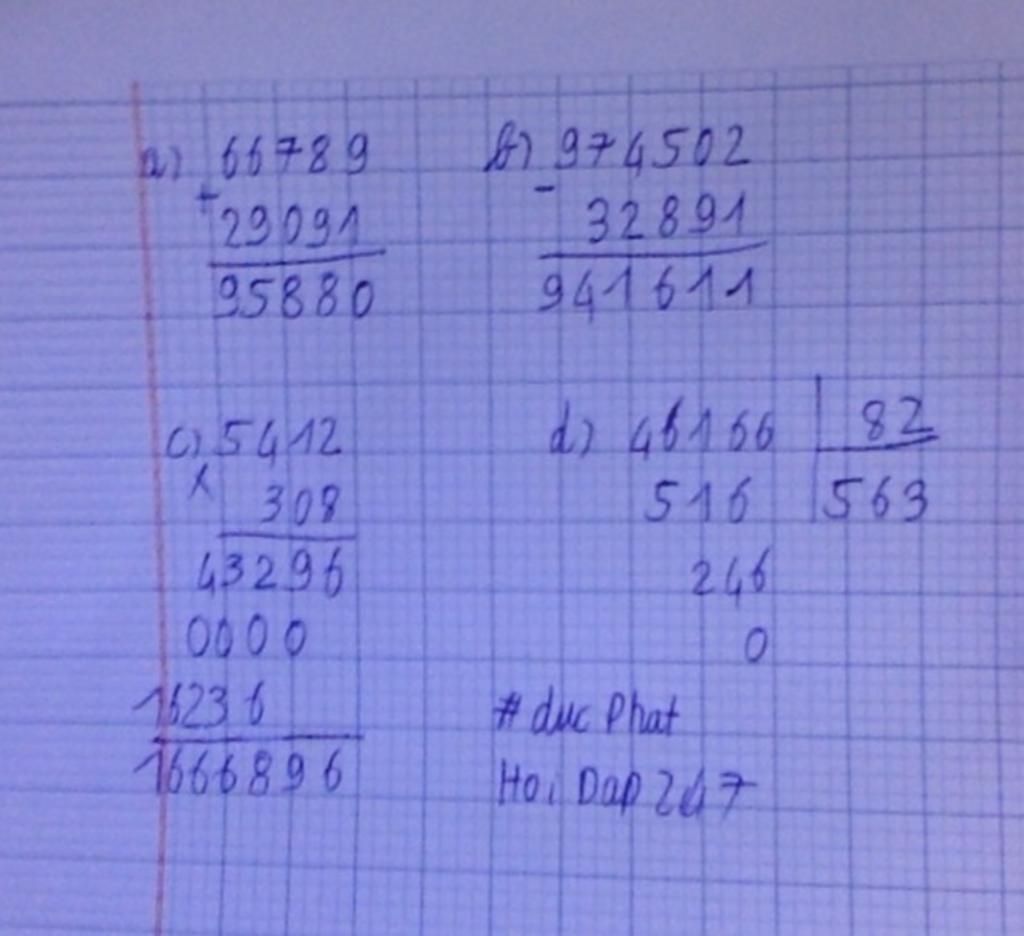 a) 66789
+
29091
95880
b) 974502
-
32891
941611
c) 5412
x
308
43296
0000
16236
1666896
d) 46166 82
516 563
246
0
# duc Phat
Hoi Dap 247